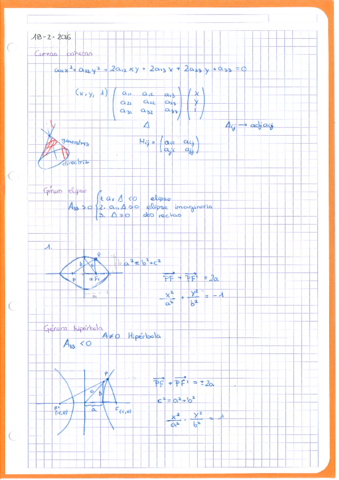 18-2-2016
Curvas cónicas
a₁₁x² + a₂₂y² + 2a₁₂xy + 2a₁₃x + 2a₂₃y + a₃₃ = 0
(x, y, 1) ( a₁₁ a₁₂ a₁₃ ) ( x )
( a₂₁ a₂₂ a₂₃ ) ( y )
( a₃₁ a₃₂ a₃₃ ) ( 1 )
Δ Aᵢⱼ → adj aᵢⱼ
generatriz
directriz
Género elipse
A₃₃ > 0 { 1. a₁₁ Δ < 0 elipse
2. a₁₁ Δ > 0 elipse imaginaria
3. Δ = 0 dos rectas
1.
a² = b² + c²
PF + PF' = 2a
x²/a² + y²/b² = -1
Género hipérbola
Δ ≠ 0 Hipérbola
A₃₃ < 0
P
F(c,0)
PF + PF' = ± 2a
c² = a² + b²
x²/a² - y²/b² = 1